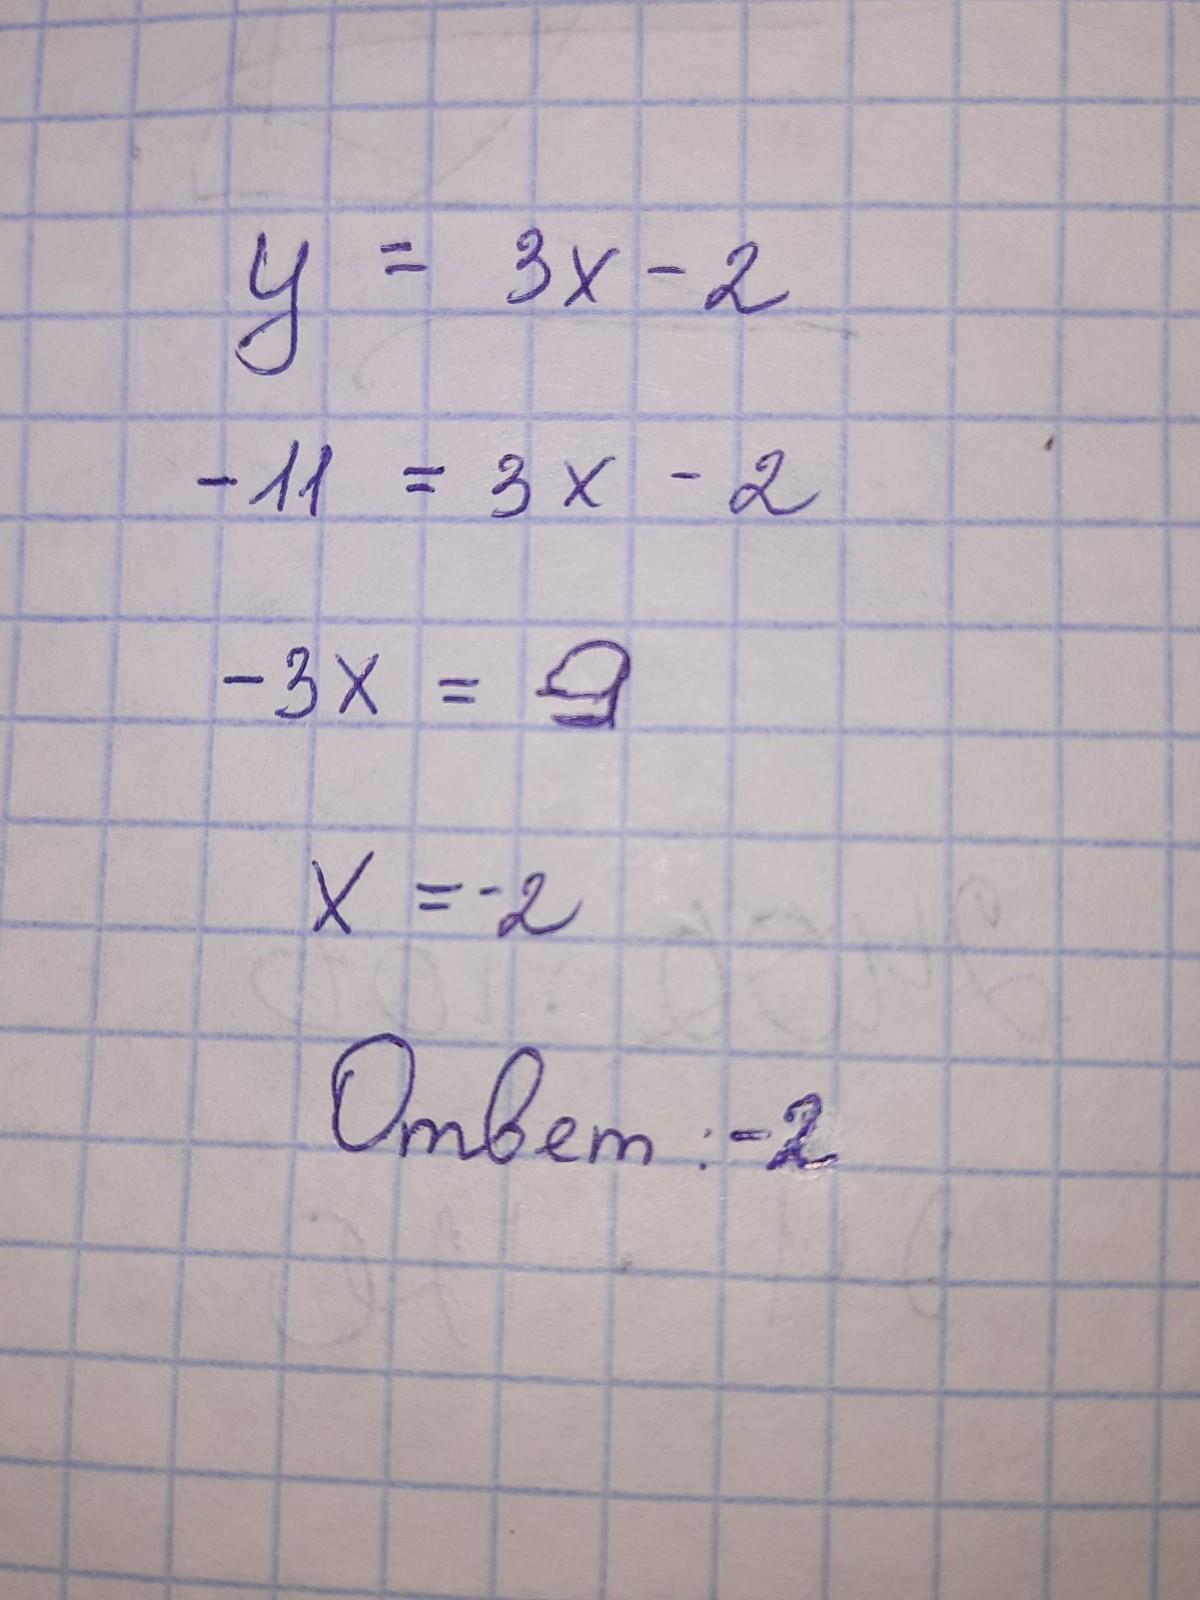 y = 3x - 2
-11 = 3x - 2
-3x = 9
x = -2
Ответ: -2